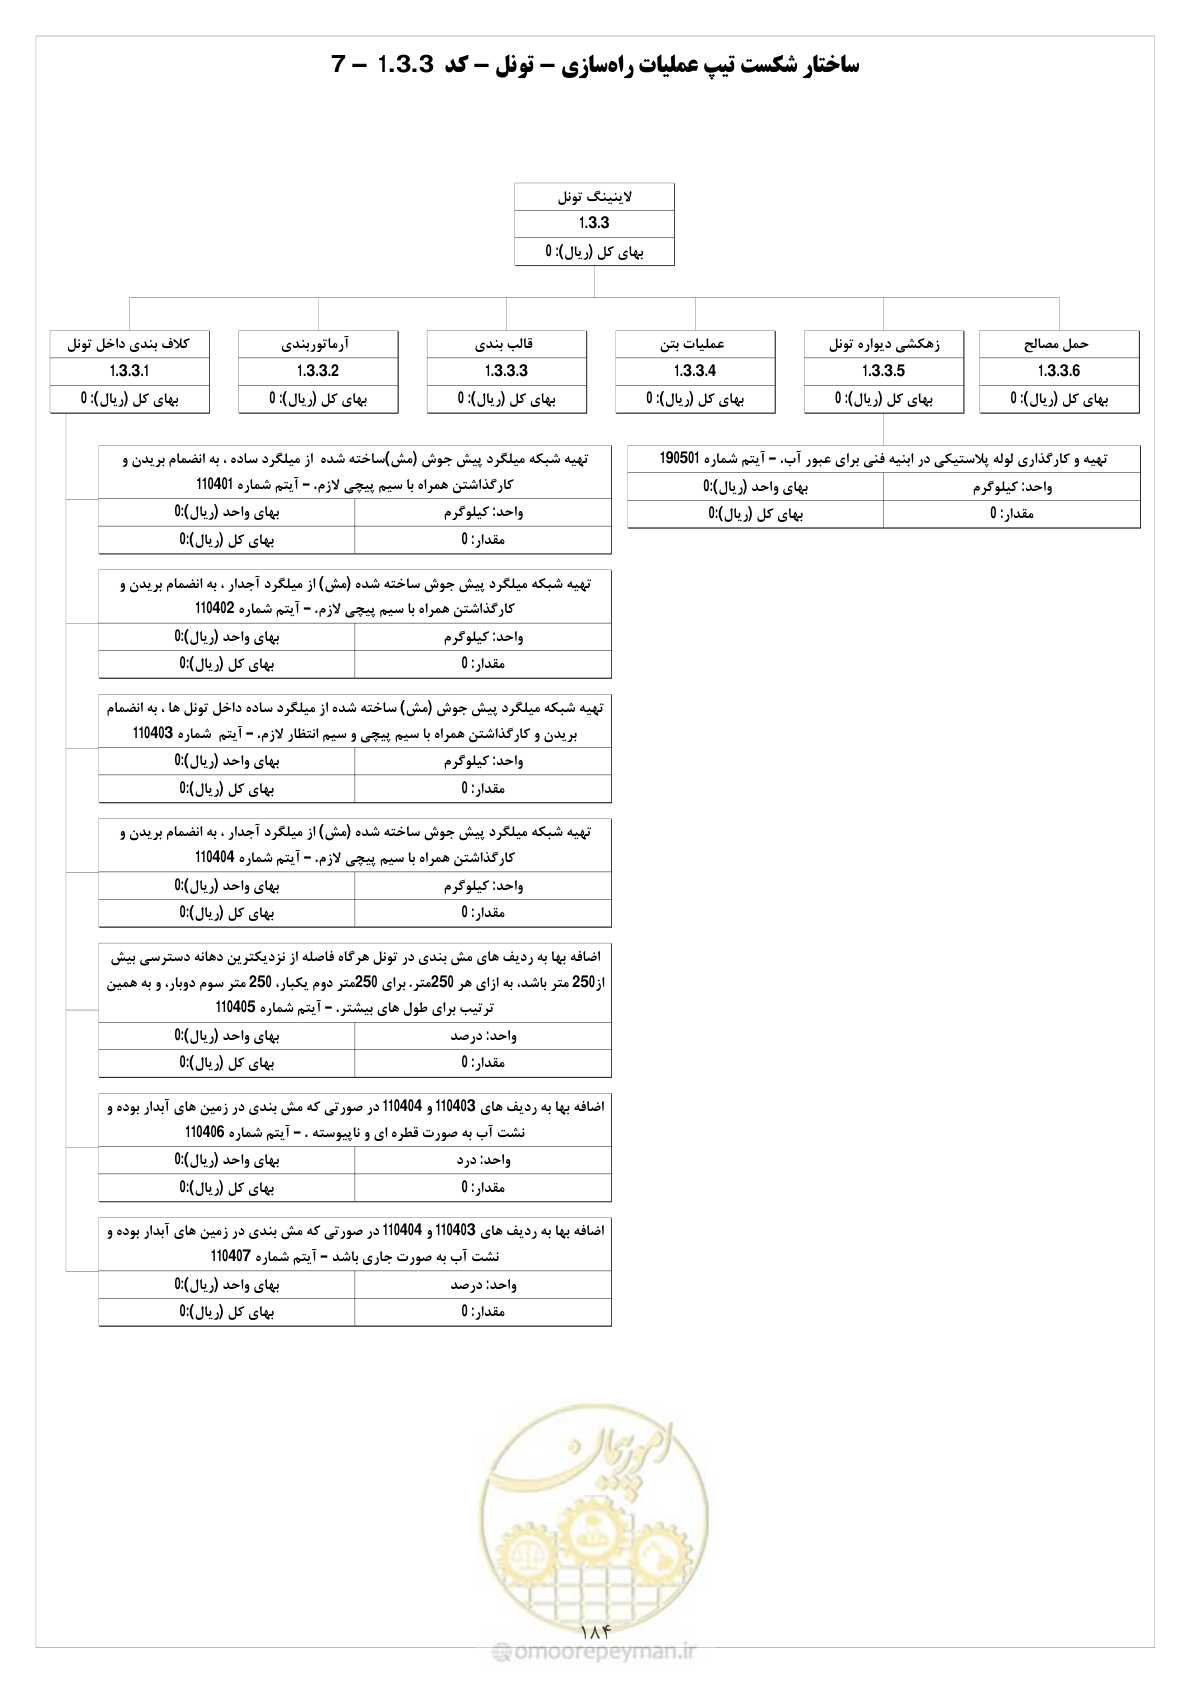 ساختار شکست تیپ عملیات راه‌سازی – تونل – کد 1.3.3 – 7
لاینینگ تونل
1.3.3
بهای کل (ریال): 0
کلاف بندی داخل تونل
1.3.3.1
بهای کل (ریال): 0
آرماتوربندی
1.3.3.2
بهای کل (ریال): 0
قالب بندی
1.3.3.3
بهای کل (ریال): 0
عملیات بتن
1.3.3.4
بهای کل (ریال): 0
زهکشی دیواره تونل
1.3.3.5
بهای کل (ریال): 0
حمل مصالح
1.3.3.6
بهای کل (ریال): 0
تهیه و کارگذاری لوله پلاستیکی در ابنیه فنی برای عبور آب. – آیتم شماره 190501
واحد: کیلوگرم
بهای واحد (ریال):0
مقدار: 0
بهای کل (ریال):0
تهیه شبکه میلگرد پیش جوش (مش)ساخته شده از میلگرد ساده ، به انضمام بریدن و
کارگذاشتن همراه با سیم پیچی لازم. – آیتم شماره 110401
واحد: کیلوگرم
بهای واحد (ریال):0
مقدار: 0
بهای کل (ریال):0
تهیه شبکه میلگرد پیش جوش ساخته شده (مش) از میلگرد آجدار ، به انضمام بریدن و
کارگذاشتن همراه با سیم پیچی لازم. – آیتم شماره 110402
واحد: کیلوگرم
بهای واحد (ریال):0
مقدار: 0
بهای کل (ریال):0
تهیه شبکه میلگرد پیش جوش (مش) ساخته شده از میلگرد ساده داخل تونل ها ، به انضمام
بریدن و کارگذاشتن همراه با سیم پیچی و سیم انتظار لازم. – آیتم شماره 110403
واحد: کیلوگرم
بهای واحد (ریال):0
مقدار: 0
بهای کل (ریال):0
تهیه شبکه میلگرد پیش جوش ساخته شده (مش) از میلگرد آجدار ، به انضمام بریدن و
کارگذاشتن همراه با سیم پیچی لازم. – آیتم شماره 110404
واحد: کیلوگرم
بهای واحد (ریال):0
مقدار: 0
بهای کل (ریال):0
اضافه بها به ردیف های مش بندی در تونل هرگاه فاصله از نزدیکترین دهانه دسترسی بیش
از250 متر باشد، به ازای هر 250متر. برای 250متر دوم یکبار، 250 متر سوم دوبار، و به همین
ترتیب برای طول های بیشتر. – آیتم شماره 110405
واحد: درصد
بهای واحد (ریال):0
مقدار: 0
بهای کل (ریال):0
اضافه بها به ردیف های 110403 و 110404 در صورتی که مش بندی در زمین های آبدار بوده و
نشت آب به صورت قطره ای و ناپیوسته . – آیتم شماره 110406
واحد: درد
بهای واحد (ریال):0
مقدار: 0
بهای کل (ریال):0
اضافه بها به ردیف های 110403 و 110404 در صورتی که مش بندی در زمین های آبدار بوده و
نشت آب به صورت جاری باشد – آیتم شماره 110407
واحد: درصد
بهای واحد (ریال):0
مقدار: 0
بهای کل (ریال):0
امور پیمان
۱۸۴
@omoorepeyman.ir